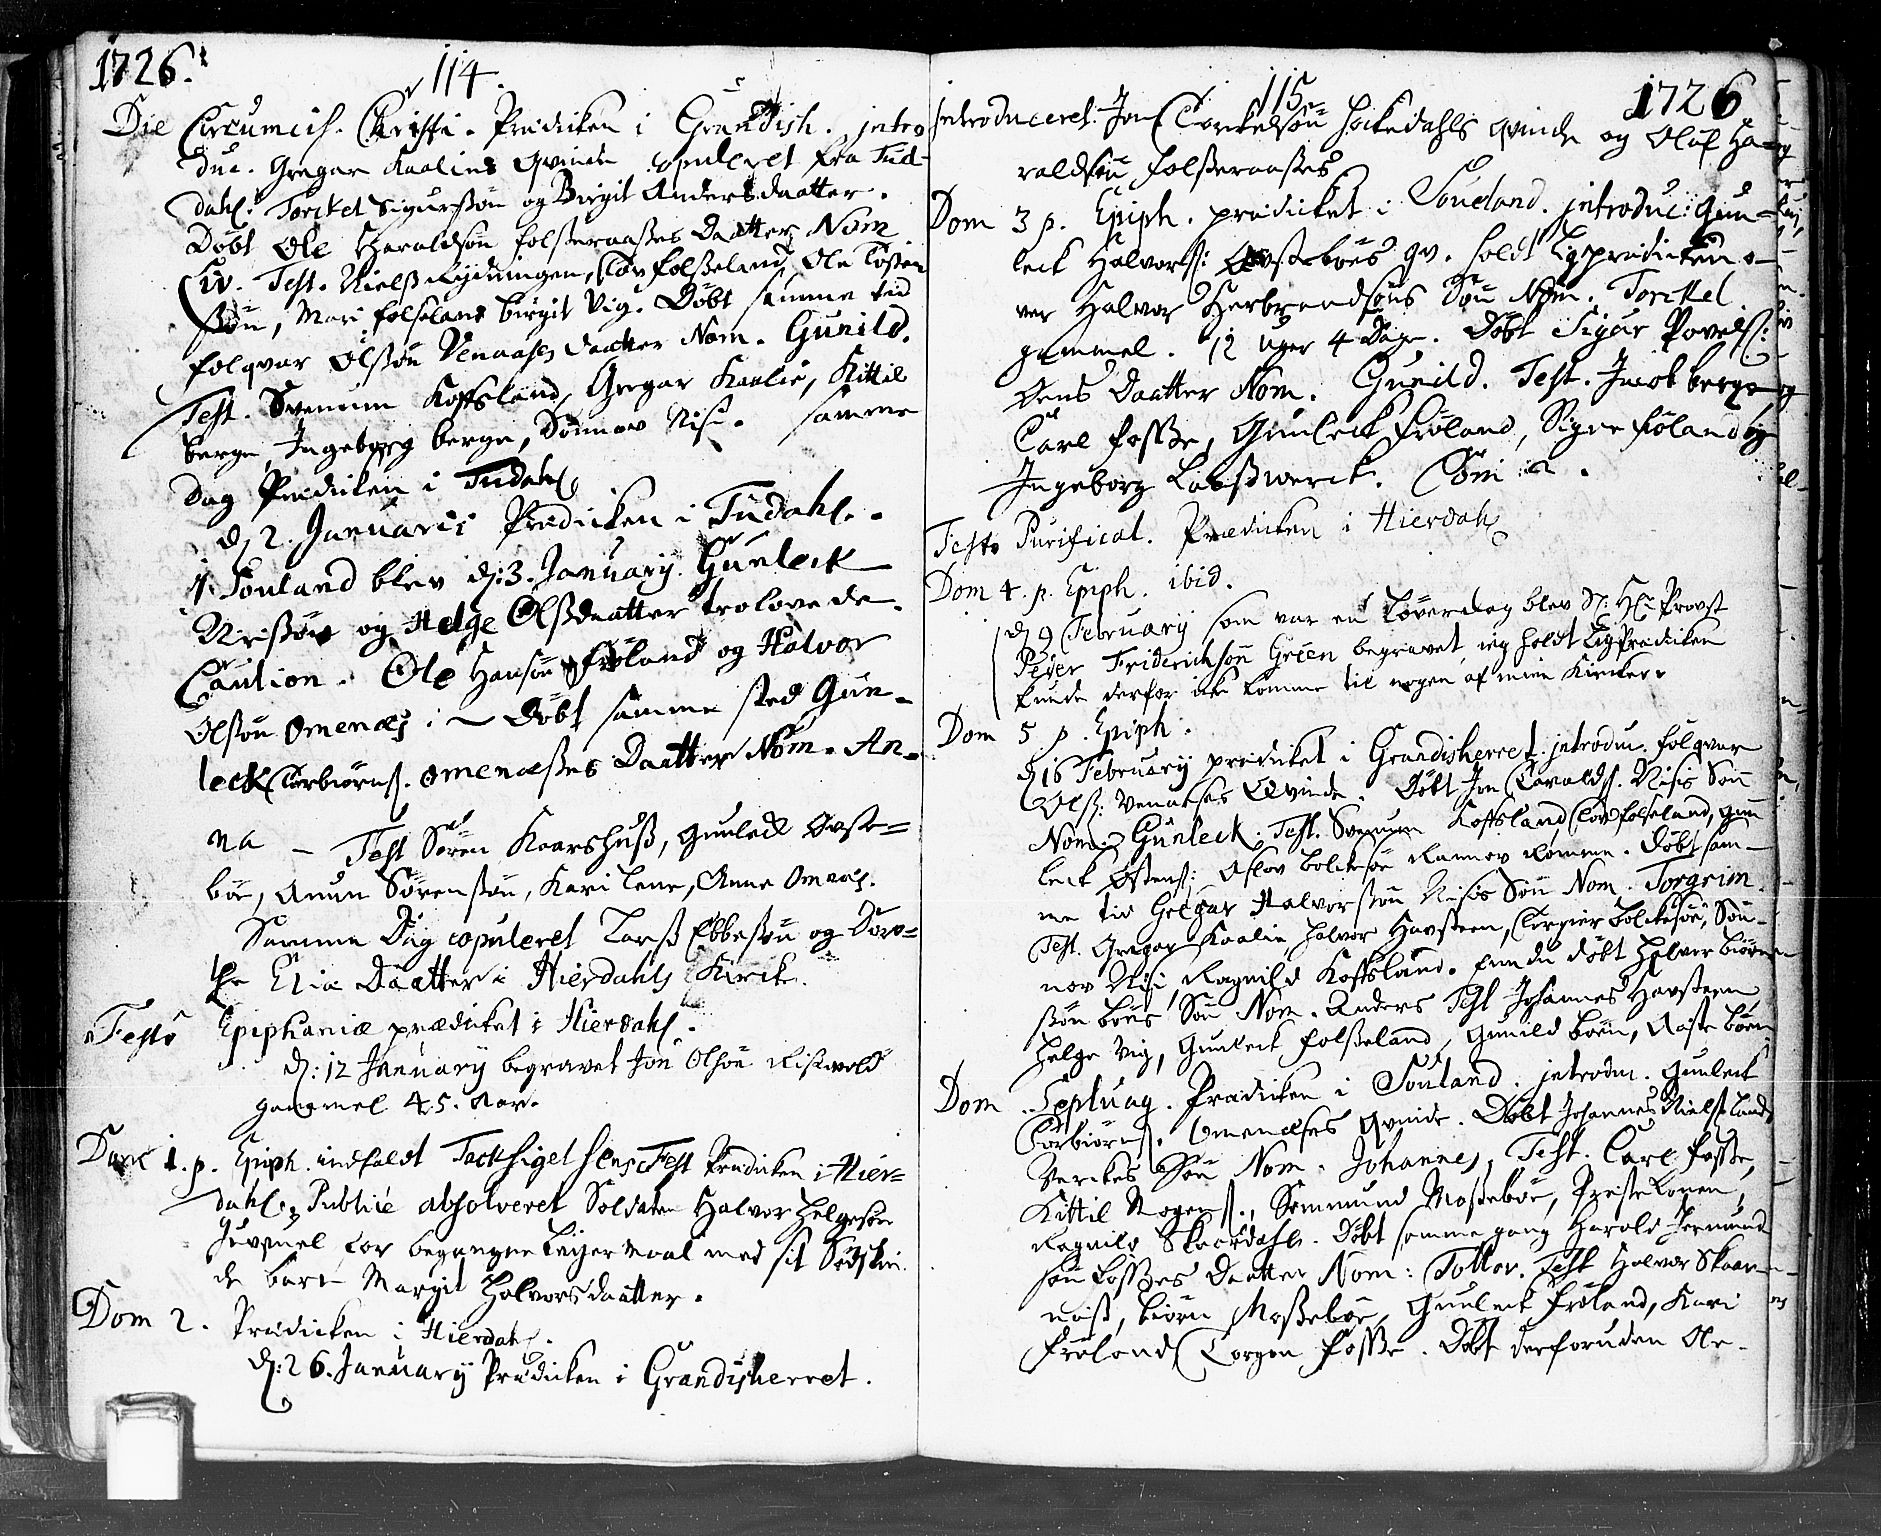 1726.
114.
Die Circumcis. Christi. Prædicken i Grandish. intro
duc. Gregar Kaalies Qvinde copuleret fra Tud-
dahl: Torckel Sigurssøn og Birgit Andersdaatter.
Døbt Ole Haraldsøn folseraasses Daatter Nom
Liv. Test. Niels Rydningen, Clov folseland, Ole Tosten
ssøn, Mari folseland birgit Vig. Døbt samme tid
folqvar Olssøn Venaases daatter Nom. Gunild.
Test. Svennun Koffsland, Gregar Kaalie, Kittil
berge, Ingeborg berge, Sønnov Nisi. samme
Dag Prædicken i Tudahl
d. 2. Januarii Prædicken i Tudahl.
i Souland blev d: 3. January Gunleck
Nirissøn og Helge Olssdaatter trolovede.
Caution. Ole Hansøn Frøland og Halvor
Olssøn Omenæs i Døbt samme sted Gun-
leck Torbiørns. omenæsses Daatter Nom. An-
na - Test Søren Kaarshuss, Gunleck Øvste-
bøe, Anun Sørenssøn, Kari Lene, Anne Omnæs.
Samme Dag copuleret Larss Ebbessøn og Doro-
the Eliæ Daatter i Hierdahls Kircke.
Festo Epiphaniæ prædicket i Hierdahl.
d: 12 January begravet Jon Olsøn Riswold
gammel 45. Aar.
Dom 1. p. Epiph. indfaldt Tacksigelsens Fest Prædicken i Hier-
dahl. Publicè absolveret Soldaten Halvor Helgesøn
for begangne Leyermaal med sit Sødskin
de barn Margit Halvorsdaatter.
Dom 2. Prædicken i Hierdahl.
d: 26. January Prædicken i Grandisherret.
115
1726
introduceret Jon Torkelsøn Hockedahls qvinde og Oluf Ha-
raldsøn folsseraasses
Dom 3 p. Epiph. prædicket i Souland. introduc: Gun-
leck Halvors: Øvstebøes qv. holdt Ligprædicken o-
ver Halvor Herbrandsøns Søn Nom. Torckel.
gammel. 12 uger 4 Dage. Døbt Sigur Povels:
Daatter Nom. Gunild. Test. Jacob berge,
Carl fosse, Gunleck Frøland, Signe føland og
Ingeborg Laasswerck. Com
Festo Purificat. Prædicken i Hierdahl
Dom 4. p. Epiph. ibid.
d. 9 February som var en Løverdag blev Sl: Hr: Provst
Peder Friderichsøn Green begravet, ieg holdt LigPrædicken
kunde derfor icke komme til nogen af mine Kircker.
Dom 5 p. Epiph.
d. 16 February prædicket i Grandisherret. introdu. folqvar
Ols: Venaases Qvinde. Døbt Jon Tovalds. Nisis Søn
Nom: Gunleck. Test. Svennun Koffsland, Clov folseland, Gun
leck Østens: Aslov bolckesøe Rannov Romme. Døbt sam-
me tid Gregar Halvorssøn Nisis Søn Nom. Torgrim.
Test. Gregar Kaalie, Halvor Havsteen, Torgier bolckesøe, Søn-
nov Nisi, Ragnild Koffsland. Endnu døbt Halvor biørn
ssøn bøens Søn Nom. Anders Test Johannes Havsteen
Helge Vig, Gunleck folsseland, Gunild bøen, Aaste bøen
Dom Septuag. Prædicken i Souland. introdu. Gunleck
Torbiørns. Omenæses qvinde. Døbt Johannes Niels: Lands
Verckes Søn Nom. Johannes, Test. Carl fosse,
Kittil Rogens., Semmund Mossebøe, Pristekonen,
Ragnild Skaardahl. Døbt samme gang Harald Jermund
søn fosses Daatter Nom: Tollov. Test Halvor Skaar-
næss, biørn Mossebøe, Gunleck Frøland, Kari
Frøland, Torgon fosse. Døbt derforuden Ole-